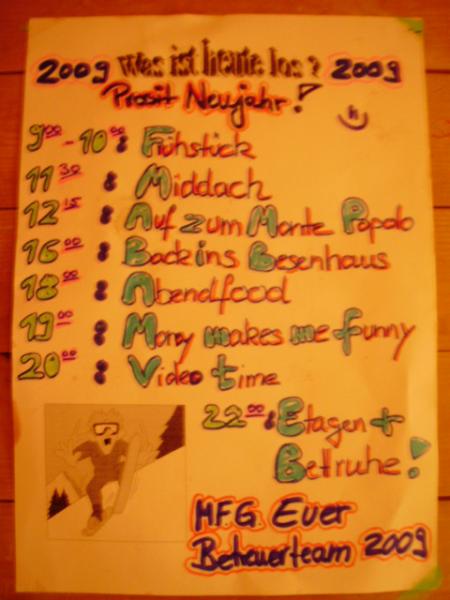 2009 Was ist heute los? 2009
Prosit Neujahr!
9⁰⁰ - 10⁰⁰ : Frühstück
11³⁰ : Middach
12¹⁵ : Auf zum Monte Popolo
16⁰⁰ : Back ins Besenhaus
18⁰⁰ : Abendfood
19⁰⁰ : Mony makes me funny
20⁰⁰ : Video time
22⁰⁰ : Etagen +
Bettruhe!
MFG Euer
Betreuerteam 2009